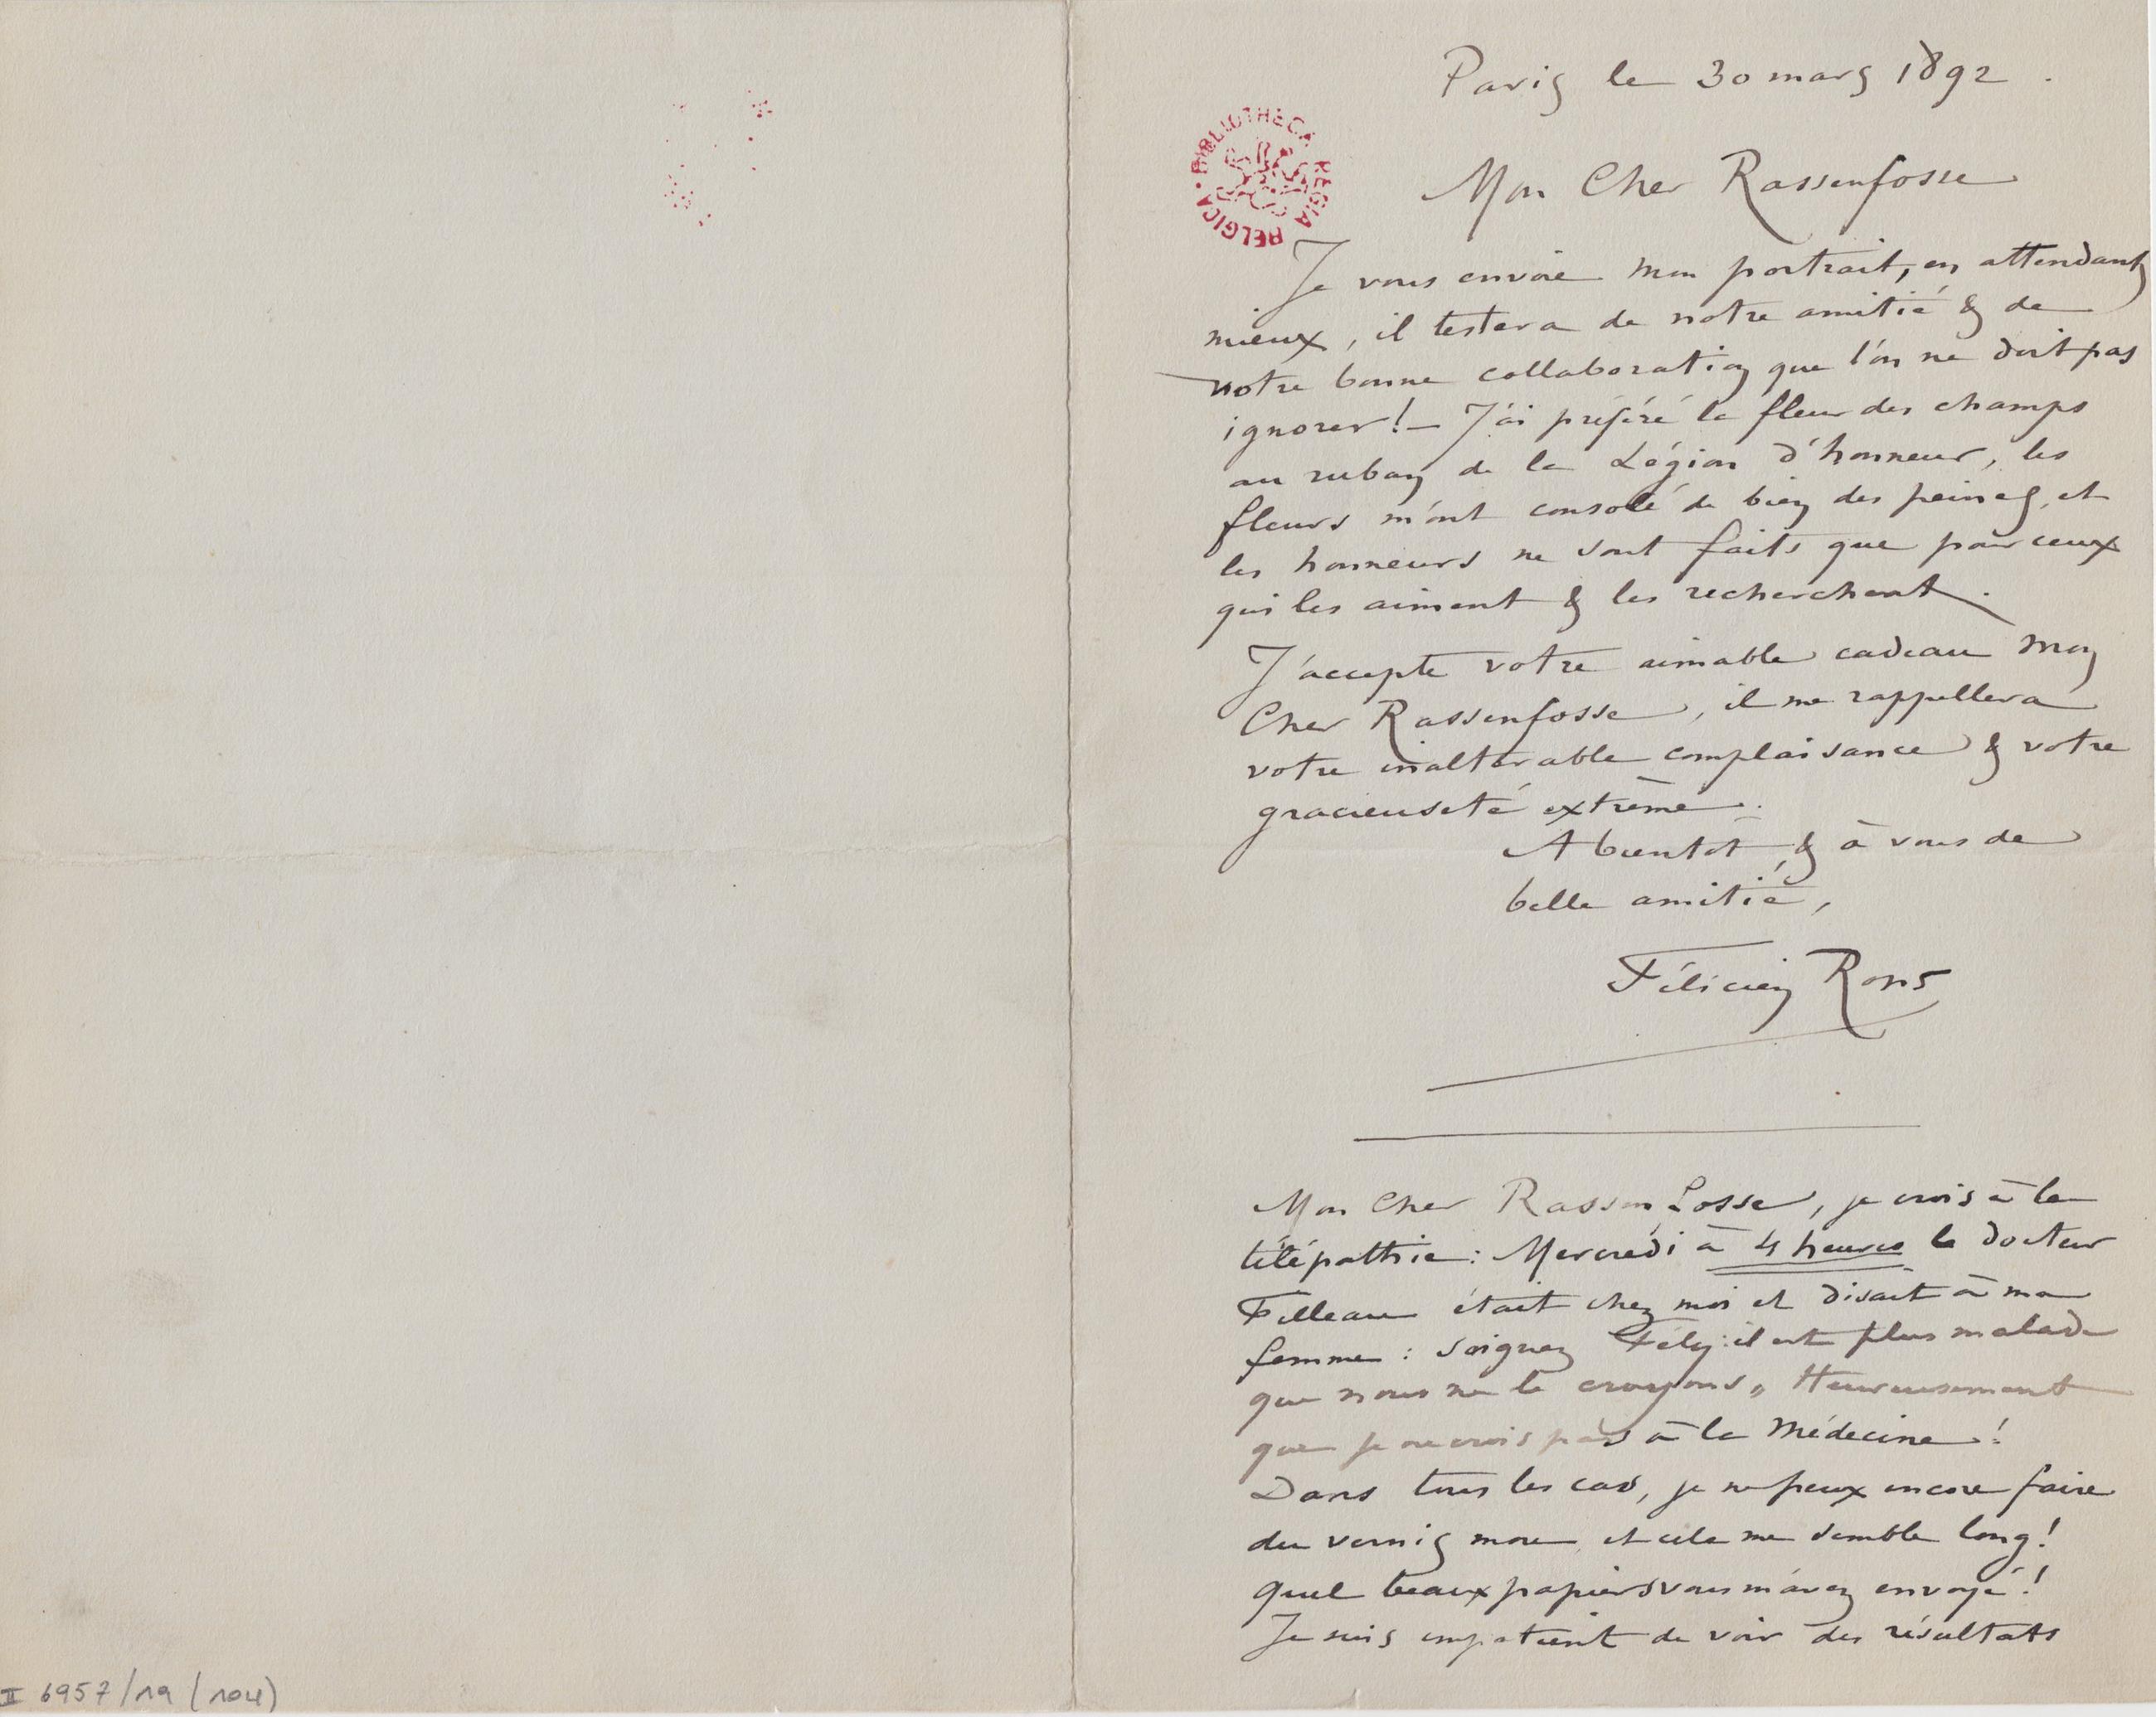 Paris le 30 mars 1892.
BIBLIOTHECA REGIA BELGICA
Mon Cher Rassenfosse
Je vous envoie mon portrait, en attendant
mieux, il testera de notre amitié & de
notre bonne collaboration que l'on ne doit pas
ignorer! – J'ai préféré la fleur des champs
au ruban de la Légion d'honneur, les
fleurs m'ont consolé de bien des peines, et
les honneurs ne sont faits que pour ceux
qui les aiment & les recherchent.
J'accepte votre aimable cadeau mon
Cher Rassenfosse, il me rappellera
votre inaltérable complaisance & votre
gracieuseté extrême.
A bientôt, & à vous de
belle amitié,
Félicien Rops
Mon Cher Rassenfosse, je crois à la
télépathie: Mercredi à 4 heures le docteur
Filleau était chez moi et disait à ma
femme: soignez Fély: il est plus malade
que nous ne le croyons „ Heureusement
que je ne crois pas à la Médecine!
Dans tous les cas, je ne peux encore faire
du vernis mou et cela me semble long!
quel beaux papiers vous m'avez envoyé!
Je suis impatient de voir des résultats
II 6957/19 (104)